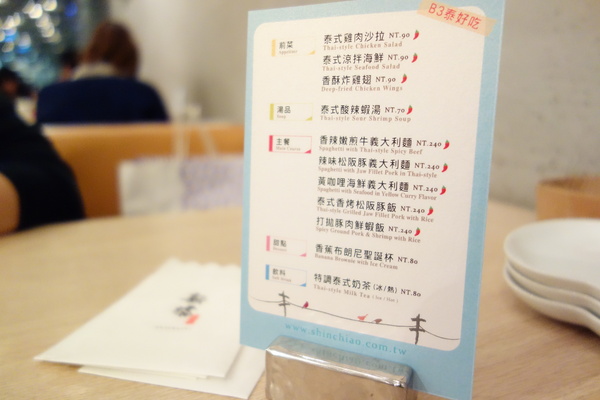 B3泰好吃
前菜
Appetizer
泰式雞肉沙拉 NT.90
Thai-style Chicken Salad
泰式涼拌海鮮 NT.90
Thai-style Seafood Salad
香酥炸雞翅 NT.90
Deep-fried Chicken Wings
湯品
Soup
泰式酸辣蝦湯 NT.70
Thai-style Sour Shrimp Soup
主餐
Main Course
香辣嫩煎牛義大利麵 NT.240
Spaghetti with Thai-style Spicy Beef
辣味松阪豚義大利麵 NT.240
Spaghetti with Jaw Fillet Pork in Thai-style
黃咖哩海鮮義大利麵 NT.240
Spaghetti with Seafood in Yellow Curry Flavor
泰式香烤松阪豚飯 NT.240
Thai-style Grilled Jaw Fillet Pork with Rice
打拋豚肉鮮蝦飯 NT.240
Spicy Ground Pork & Shrimp with Rice
甜點
Dessert
香蕉布朗尼聖誕杯 NT.80
Banana Brownie with Ice Cream
飲料
Soft Drinks
特調泰式奶茶(冰/熱) NT.80
Thai-style Milk Tea (Ice / Hot)
www.shinchiao.com.tw